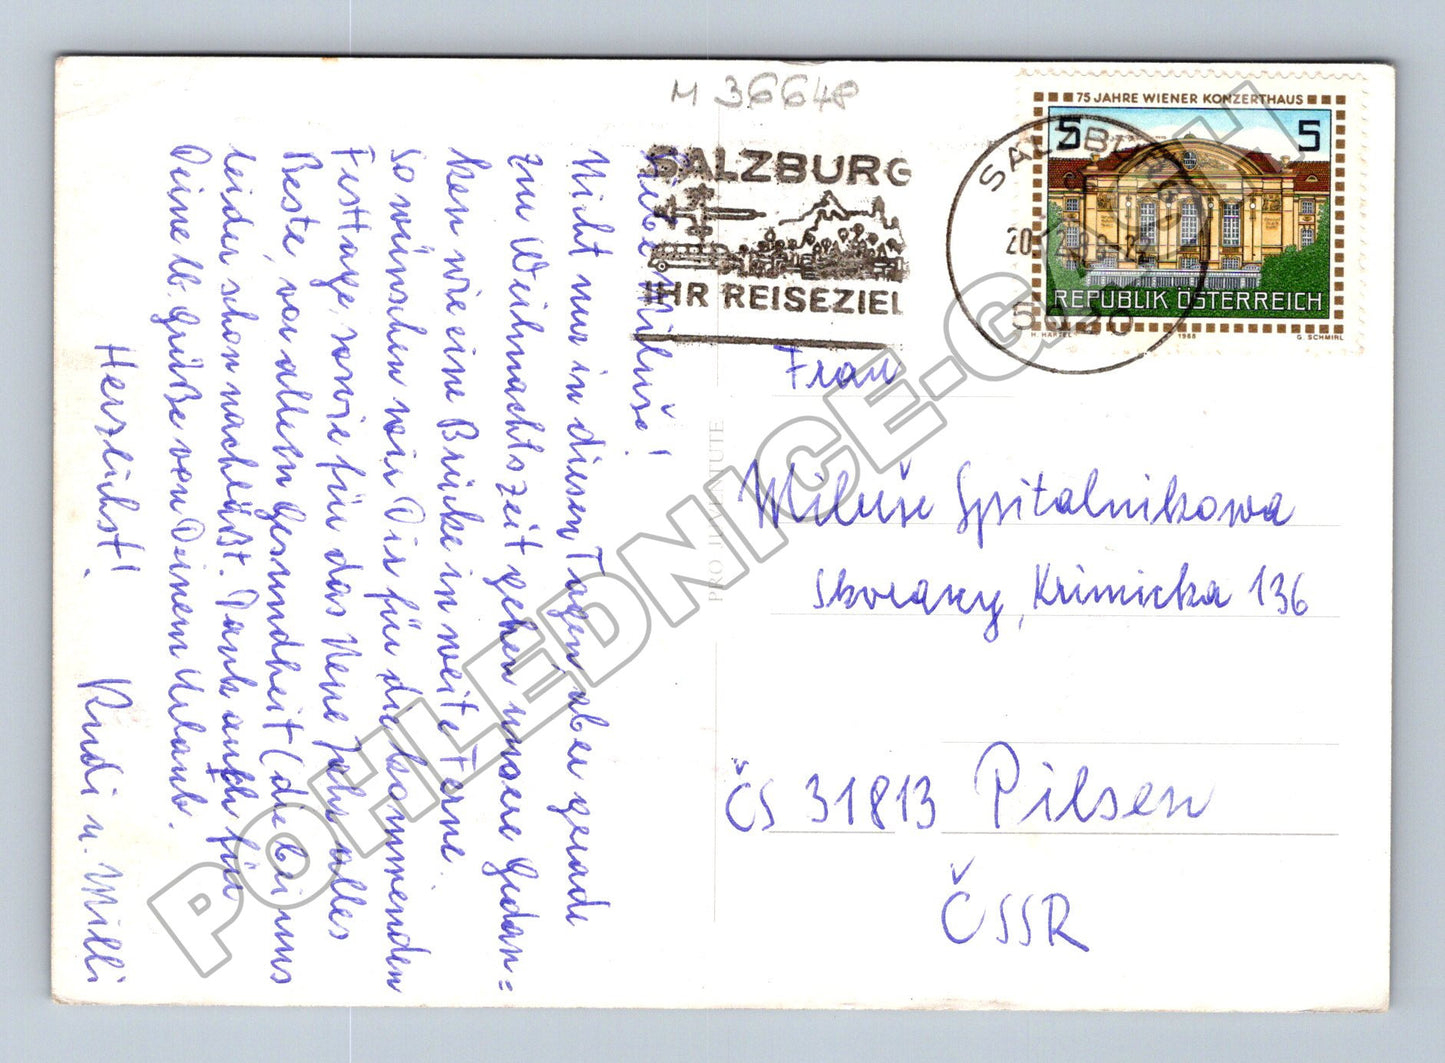 M 36648
SALZBURG
IHR REISEZIEL
75 JAHRE WIENER KONZERTHAUS
5 5
REPUBLIK ÖSTERREICH
H. HARTEL 1988 G. SCHMIRL
SALZBURG
5020
Liebe Miluše!
Nicht nur in diesen Tagen, aber gerade
zur Weihnachtszeit gehen unsere Gedan=
ken wie eine Brücke in weite Ferne.
So wünschen wir Dir für die kommenden
Festtage, sowie für das Neue Jahr alles
Beste, vor allem Gesundheit (die bei uns
leider schon nachläßt. Dank auch für
Deine lb. Grüße von Deinem Urlaub.
Herzlichst!
Rudi u. Milli
PRO JUVENTUTE
Frau
Miluše Spitalnikowa
Skvrany, Krimicka 136
ČS 31813 Pilsen
ČSSR
POHLEDNICE-GALCH